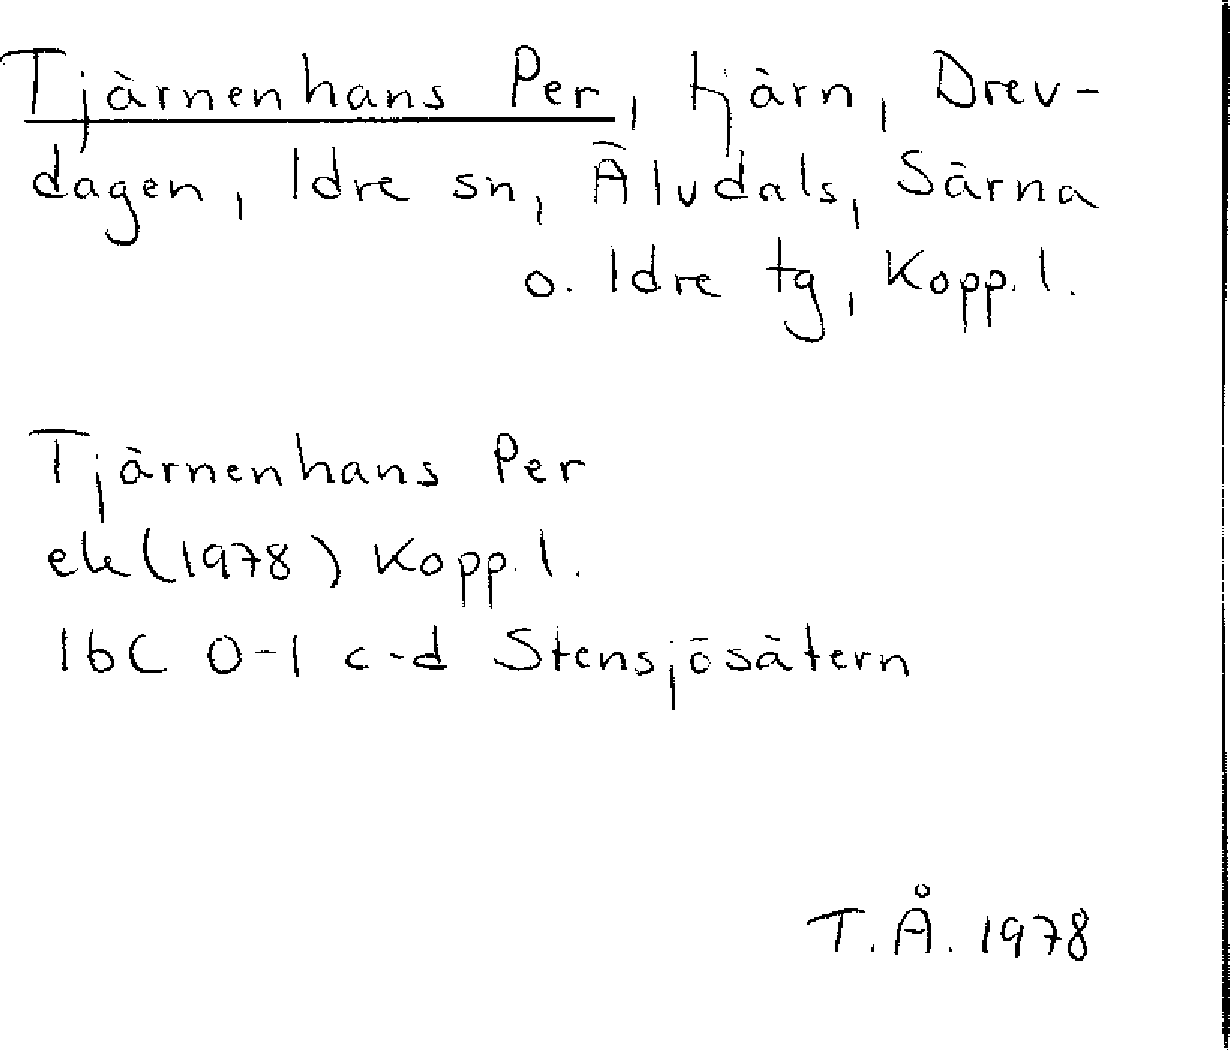 Tjärnenhans Per, tjärn, Drev-
dagen, Idre sn, Älvdals, Särna
o. Idre tg, Kopp. l.
Tjärnenhans Per
ek (1978) Kopp. l.
16C 0-1 c-d Stensjösätern
T.Å. 1978